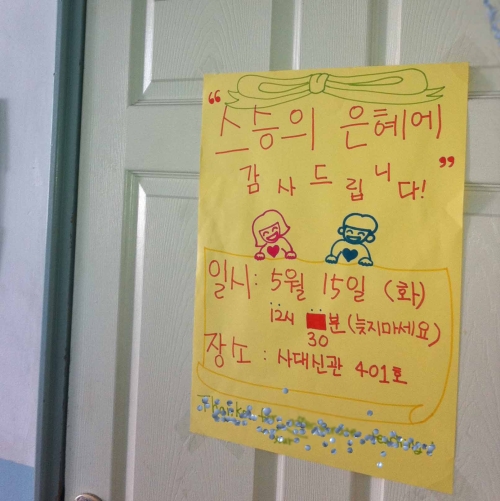 “스승의 은혜에
감사드립니다!”
일시: 5월 15일 (화)
12시 분(늦지마세요)
30
장소 : 사대신관 401호